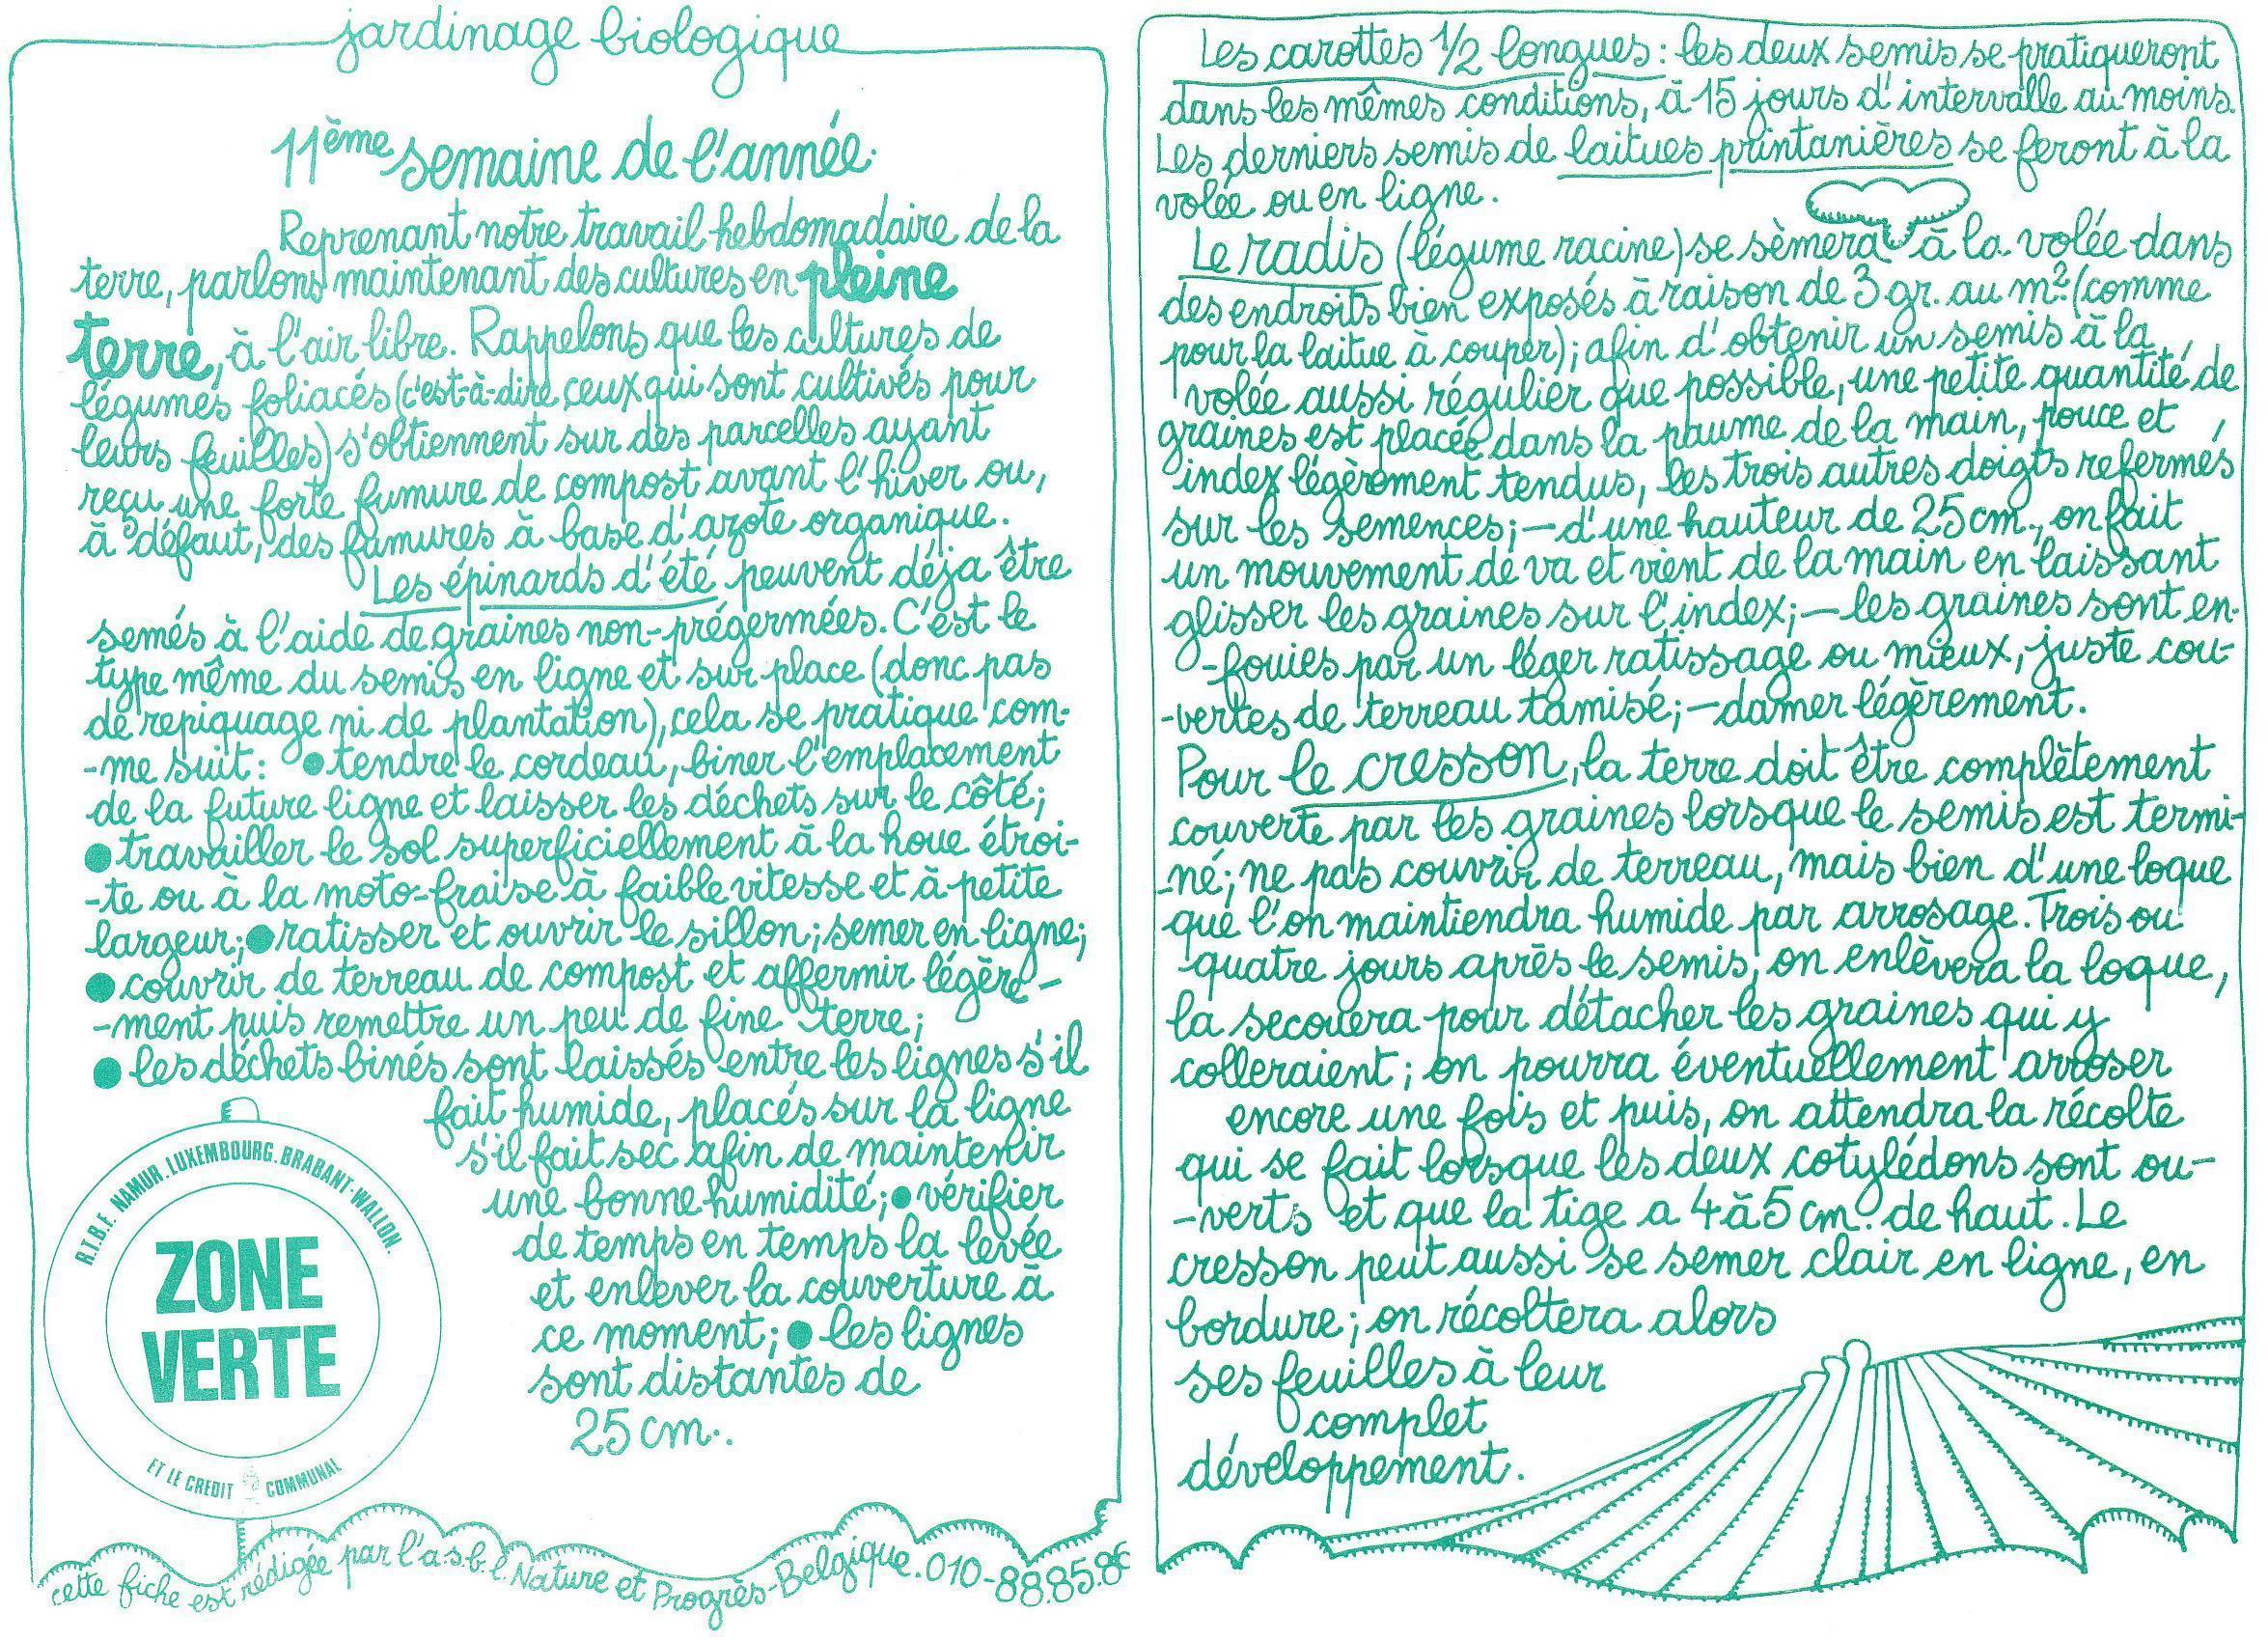 jardinage biologique
11ème semaine de l'année.
Reprenant notre travail hebdomadaire de la
terre, parlons maintenant des cultures en pleine
terre, à l'air libre. Rappelons que les cultures de
légumes foliacés (c'est-à-dire ceux qui sont cultivés pour
leurs feuilles) s'obtiennent sur des parcelles ayant
reçu une forte fumure de compost avant l'hiver ou,
à défaut, des fumures à base d'azote organique.
Les épinards d'été peuvent déja être
semés à l'aide de graines non-prégermées. C'est le
type même du semis en ligne et sur place (donc pas
de repiquage ni de plantation), cela se pratique com-
-me suit: ● tendre le cordeau, biner l'emplacement
de la future ligne et laisser les déchets sur le côté;
● travailler le sol superficiellement à la houe étroi-
-te ou à la moto-fraise à faible vitesse et à petite
largeur; ● ratisser et ouvrir le sillon; semer en ligne;
● couvrir de terreau de compost et affermir légère-
-ment puis remettre un peu de fine terre;
● les déchets binés sont laissés entre les lignes s'il
fait humide, placés sur la ligne
s'il fait sec afin de maintenir
une bonne humidité; ● vérifier
de temps en temps la levée
et enlever la couverture à
ce moment; ● les lignes
sont distantes de
25 cm..
R.T.B.F. NAMUR. LUXEMBOURG. BRABANT-WALLON.
ZONE
VERTE
ET LE CREDIT COMMUNAL
cette fiche est rédigée par l'a.s.b.l. Nature et Progrès-Belgique. 010-88.85.86
Les carottes 1/2 longues: les deux semis se pratiqueront
dans les mêmes conditions, à 15 jours d'intervalle au moins.
Les derniers semis de laitues printanières se feront à la
volée ou en ligne.
Le radis (légume racine) se sèmera à la volée dans
des endroits bien exposés à raison de 3 gr. au m². (comme
pour la laitue à couper); afin d'obtenir un semis à la
volée aussi régulier que possible, une petite quantité de
graines est placée dans la paume de la main, pouce et
index légèrement tendus, les trois autres doigts refermés
sur les semences; — d'une hauteur de 25 cm., on fait
un mouvement de va et vient de la main en laissant
glisser les graines sur l'index; — les graines sont en-
-fouies par un léger ratissage ou mieux, juste cou-
-vertes de terreau tamisé; — damer légèrement.
Pour le cresson, la terre doit être complètement
couverte par les graines lorsque le semis est termi-
-né; ne pas couvrir de terreau, mais bien d'une loque
que l'on maintiendra humide par arrosage. Trois ou
quatre jours après le semis, on enlèvera la loque,
la secouera pour détacher les graines qui y
colleraient; on pourra éventuellement arroser
encore une fois et puis, on attendra la récolte
qui se fait lorsque les deux cotylédons sont ou-
-verts et que la tige a 4 à 5 cm. de haut. Le
cresson peut aussi se semer clair en ligne, en
bordure; on récoltera alors
ses feuilles à leur
complet
développement.